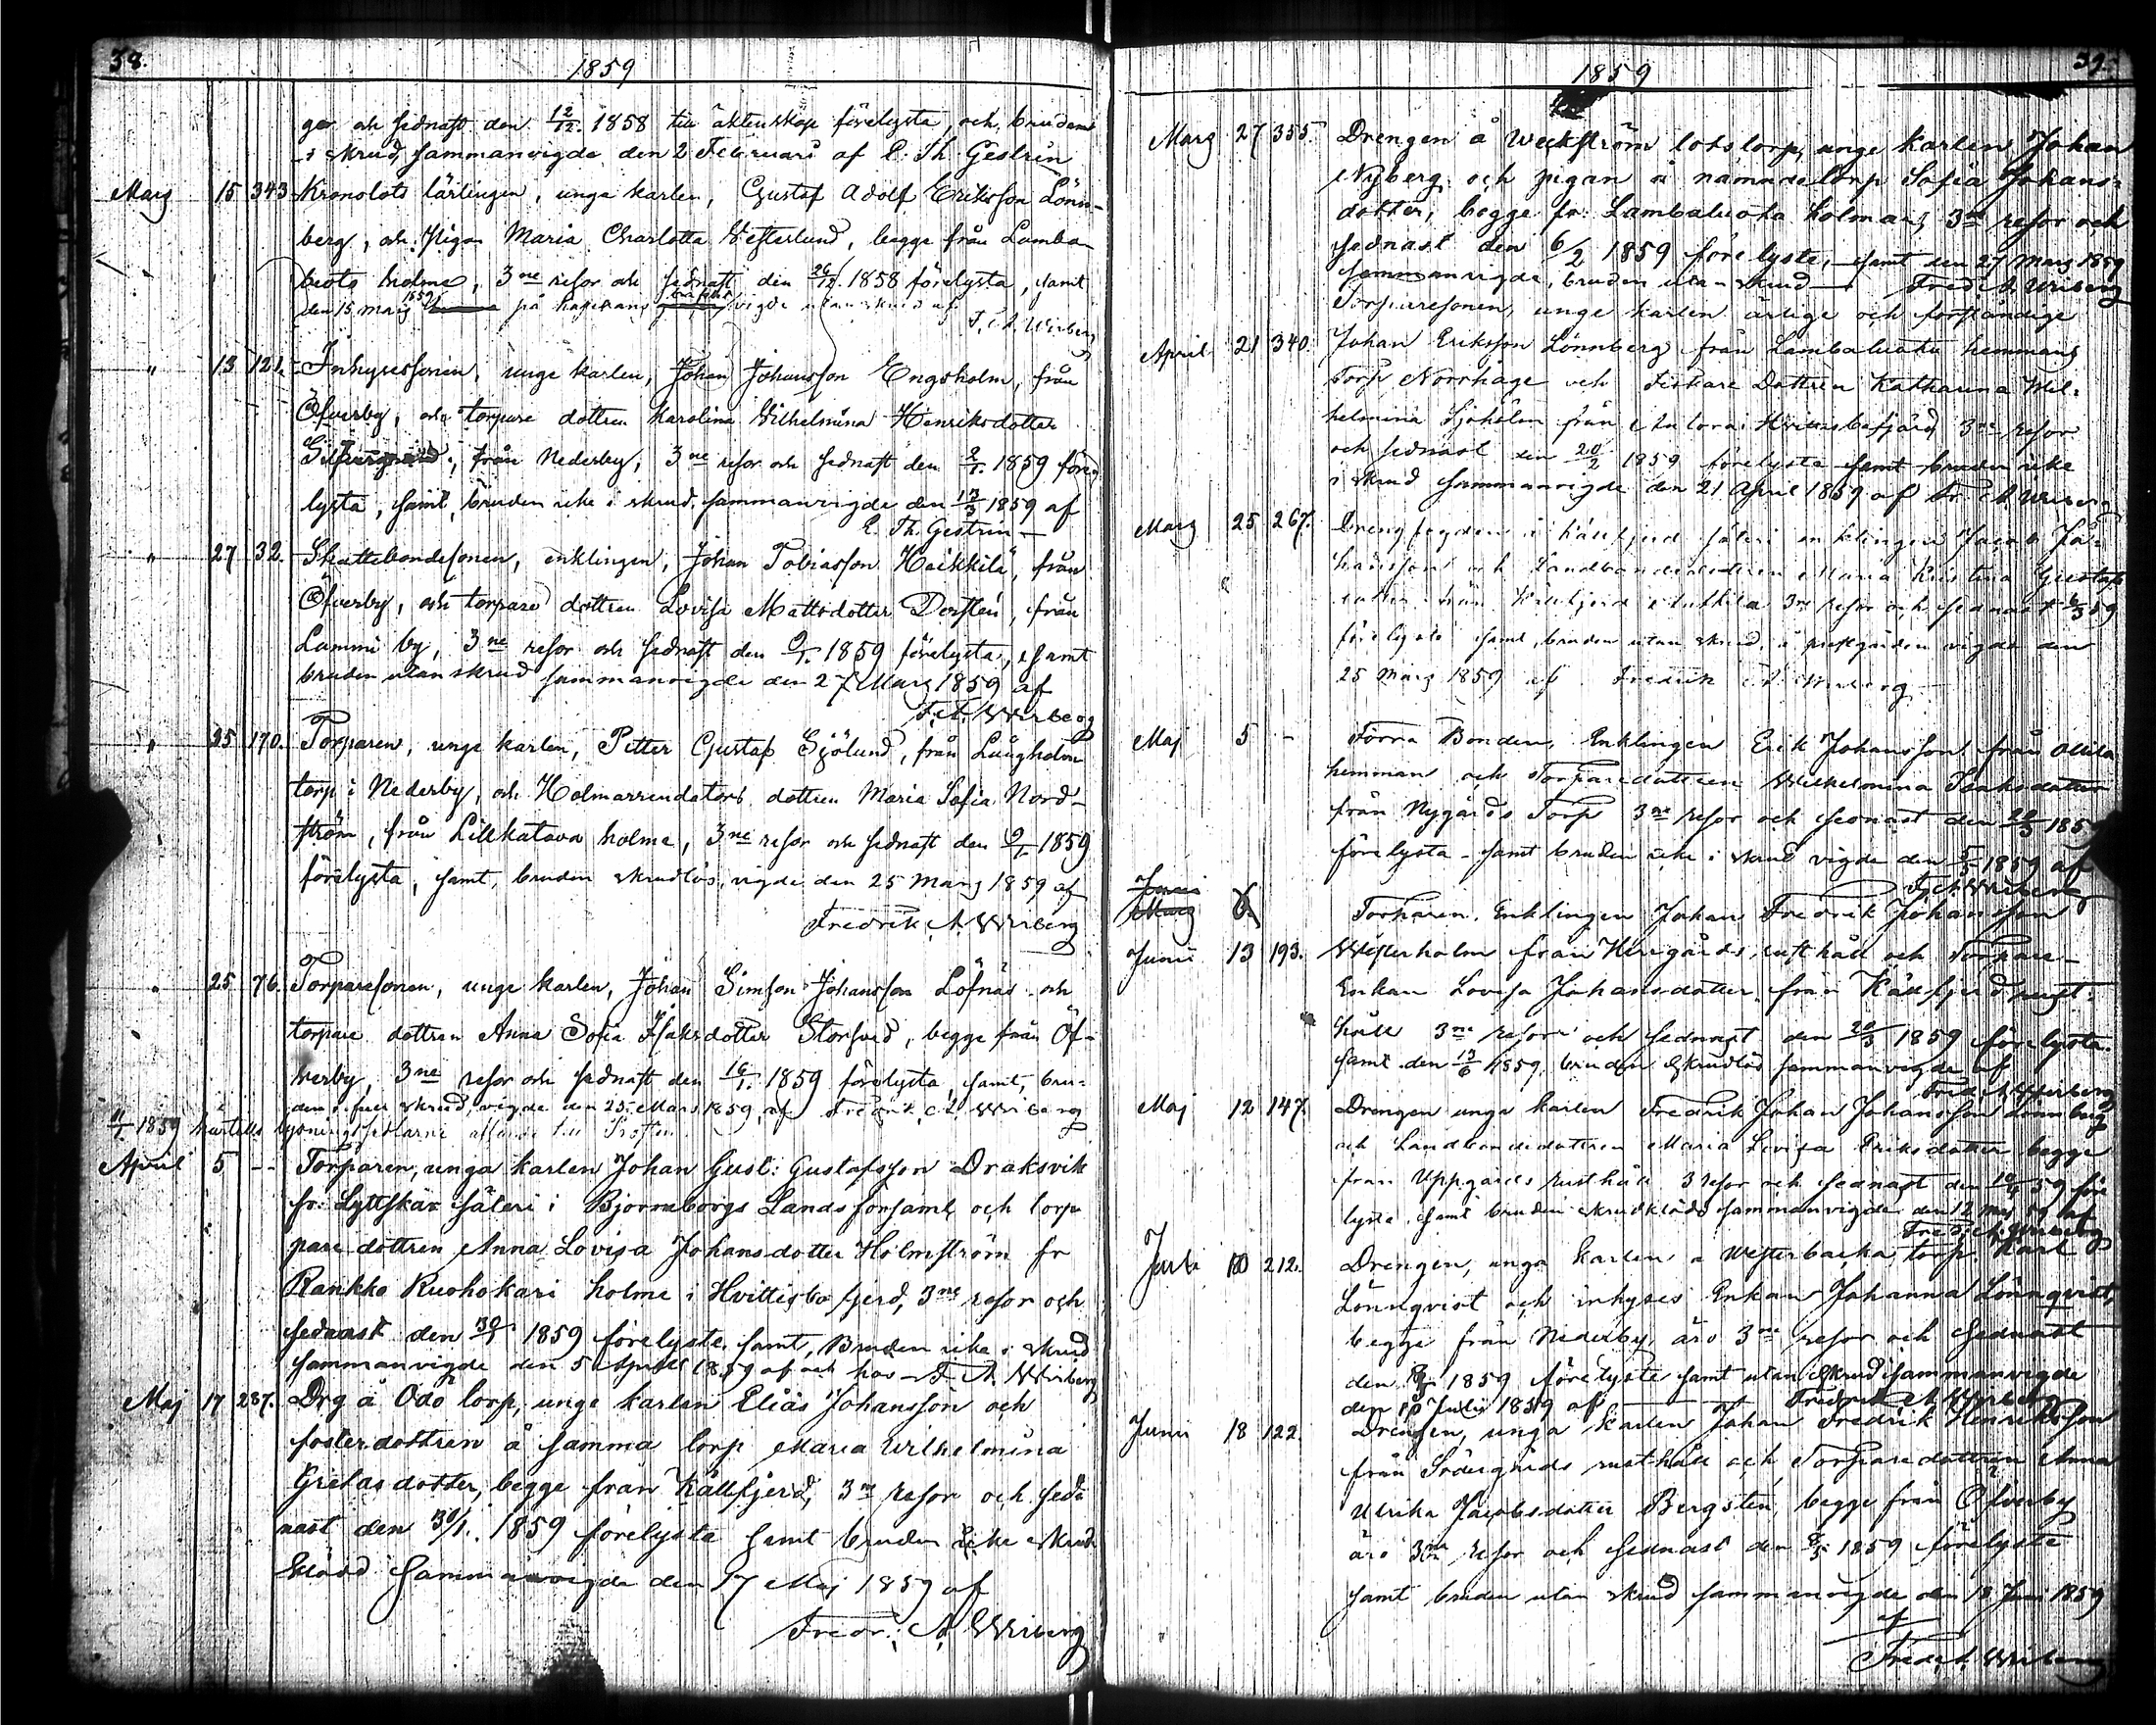 38.
1859
ger och sednast den 12/12. 1858 till äktenskap förelysta, och, bruden
i skrud, sammanvigde den 2 Februari af E. Th. Gestrin
Marz 15 343 Kronolots lärlingen, unge karlen, Gustaf Adolf Eriksson Lönn-
berg, och Pigan Maria Charlotta Vesterlund, begge från Lamba-
luoto holme, 3ne resor och sednast den 26/12 1858 förelysta, samt
den 15 marz 1859 på kapellans vigde utan skrud af
F. A. Wiberg
" 13 121. Inhysessonen, unge karlen, Johan Johansson Engsholm, från
Öfverby, och torpare dottren Karolina Vilhelmina Henriksdotter
från Nederby, 3ne resor och sednast den 2/1. 1859 före-
lysta, samt, bruden icke i skrud, sammanvigde den 13/3 1859 af
E. Th. Gestrin
" 27 32. Skattebondesonen, enklingen, Johan Tobiasson Heikkilä, från
Öfverby, och torpare dottren Lovisa Mattsdotter Dorftén, från
Lammi by, 3ne resor och sednast den 9/1. 1859 förelysta, samt
bruden utan skrud sammanvigde den 27 Marz 1859 af
F. A. Wiberg
" 25 170. Torparen, unge karlen, Petter Gustaf Sjölund, från Långholm
torp i Nederby, och Holmarrendators dottren Maria Sofia Nord-
ström, från Lillkatava holme, 3ne resor och sednast den 9/1 1859
förelysta, samt, bruden skrudlös, vigde den 25 Marz 1859 af
Fredrik A. Wiberg
" 25 76. Torparesonen, unge karlen, Johan Simson Johansson Löfnäs och
torpare dottren Anna Sofia Isaksdotter Storsved, begge från Öf-
verby, 3ne resor och sednast den 16/1. 1859 förelysta, samt, bru-
den i full skrud, vigde den 25 Mars 1859, af Fredrik A. Wiberg
1859 lysningssedlarne till Prosten
April 5 -- Torparen, unga karlen Johan Gust: Gustafsson Draksvik
fr. Lyttskär säteri i Björneborgs Landsförsaml. och torp-
pare dottren Anna Lovisa Johansdotter Holmström fr
Rankko Ruohokari holme i Hvittisbofjerd, 3ne resor och
sednast den 30/1 1859 förelyste, samt, Bruden icke i skrud
sammanvigde den 5 April 1859 af F. A. Wiberg
Maj 17 287. Drg å Ödö torp, unge karlen Elias Johansson och
fosterdottren å samma torp Maria Wilhelmina
Gretasdotter, begge från Källfjerd, 3ne resor och sed-
nast den 30/1. 1859 förelysta samt bruden icke skrud
klädd sammanvigde den 17 Maj 1859 af
Fredr: A. Wiberg
39.
1859
Marz 27 355. Drengen å Weckström lotstorp, unge karlen Johan
Nyberg och pigan å nämnde torp Sofia Johans-
dotter, begge fr. Lambaluoto holmar, 3ne resor och
sednast den 6/2 1859 förelyste, samt den 27 Marz 1859
sammanvigde, bruden utan skrud Fred. A. Wiberg
April 21 340. Torparesonen, unge karlen ärlige och förståndige
Johan Eriksson Lönnberg från Lambaluoto hemmans
torp Norrhage och Fiskare Dottren Katharina Wil-
helmina Sjöholm från Antora i Hvittisbofjärd, 3ne resor
och sednast den 20/2 1859 förelysta samt bruden icke
i skrud sammanvigde den 21 April 1859 af Fr. A. Wiberg
Marz 25 267. Drengfogden i Källfjerd säteri enklingen Jacob Jo-
hansson och Landbondedottren Maria Kristina Gustafs
dotter från 3ne resor och sednast 6/3 59
förelyste samt bruden utan skrud i prestgården vigde den
25 Marz 1859 af Fredrik A. Wiberg
Maj 5 - Förra Bonden, Enklingen Erik Johansson från Ollila
hemman och Torparedottren Wilhelmina Isaksdotter
från Nygårds Torp 3ne resor och sednast den 20/3 1859
förelysta - samt bruden icke i skrud vigde den 5/5 1859 af
F. A. Wiberg
Torparen, Enklingen Johan Fredrik Johansson
Junii 13 193. Westerholm från Herrgårds rusthåll och Torpare-
Enkan Lovisa Johansdotter från Källfjerd rust-
håll 3ne resor och sednast den 20/3 1859 förelysta
samt den 13/6 1859 bruden skrudlös sammanvigde af
Fred. A. Wiberg
Maj 12 147. Drengen unge karlen Fredrik Johan Johansson Lönnberg
och Landbondedottren Maria Lovisa Eriksdotter begge
från Uppgårds rusthåll 3 resor och sednast den 10/4 59 före
lyste, samt bruden skrudklädd sammanvigde den 12 Maj 59 af
Fred. A. Wiberg
Juli 10 212. Drengen, unga karlen å Westerbacka torp Karl
Lönnqvist och inhyses Enkan Johanna Lönnqvist,
begge från Nederby äro 3ne resor och sednast
den 1859 förelyste samt utan skrud sammanvigde
den 10 Julii 1859 af Fredrik A. Wiberg
Junii 18 122. Drengen, unga karlen Johan Fredrik Henriksson
från Södergårds rusthåll och Torparedottren Anna
Ulrika Jacobsdotter Bergstén, begge från Öfverby
äro 3ne resor och sednast den 8/5 1859 förelyste
samt bruden utan skrud sammanvigde den 18 Juni 1859
af
Fred. A. Wiberg